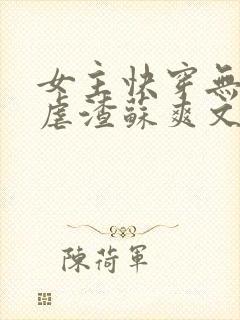 女主快穿無
虐渣蘇爽文
陳荷軍